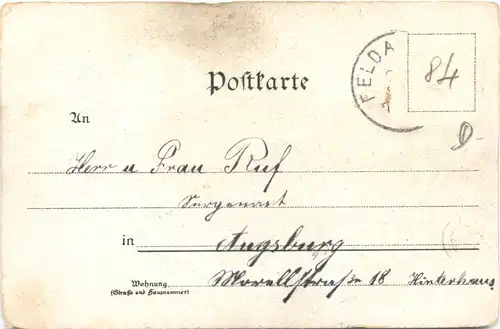 Postkarte
FELDA
84
An
Herr u Frau Ruf
Sergenant
in Augsburg
Wohnung Morellstraße 18 Hinterhaus
(Straße und Hausnummer)